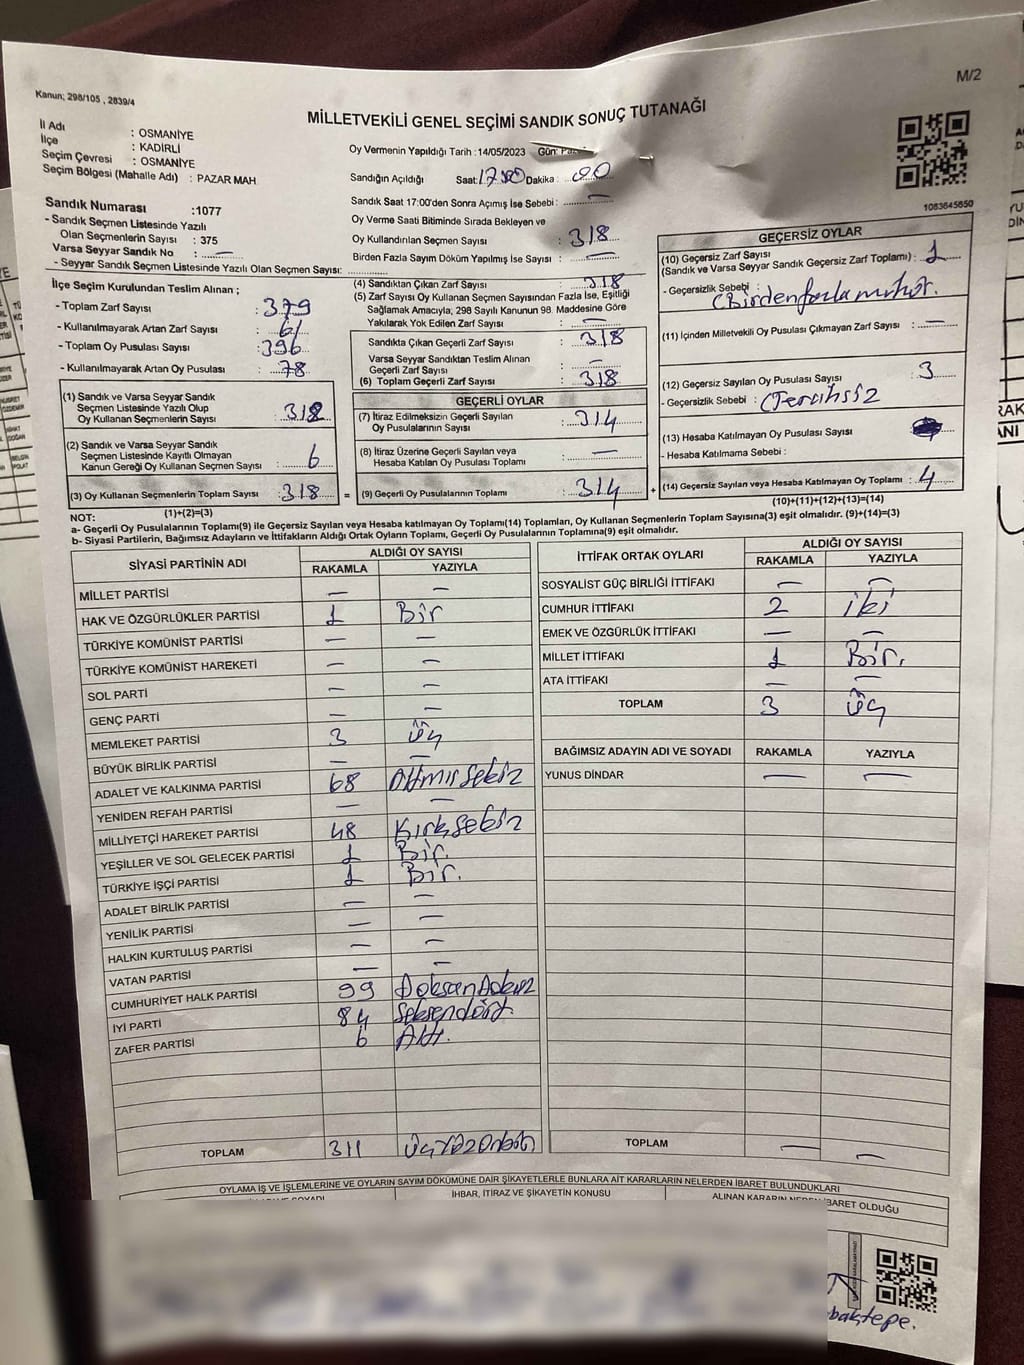 M/2
Kanun; 298/105 , 2839/4
MİLLETVEKİLİ GENEL SEÇİMİ SANDIK SONUÇ TUTANAĞI
İl Adı : OSMANİYE
İlçe : KADİRLİ
Seçim Çevresi : OSMANİYE
Seçim Bölgesi (Mahalle Adı) : PAZAR MAH
Sandık Numarası :1077
- Sandık Seçmen Listesinde Yazılı
Olan Seçmenlerin Sayısı : 375
Varsa Seyyar Sandık No : —
- Seyyar Sandık Seçmen Listesinde Yazılı Olan Seçmen Sayısı:
Oy Vermenin Yapıldığı Tarih :14/05/2023 Gün:
Sandığın Açıldığı Saat: Dakika : 00
Sandık Saat 17:00'den Sonra Açımış İse Sebebi : —
Oy Verme Saati Bitiminde Sırada Bekleyen ve
Oy Kullandırılan Seçmen Sayısı : 318
Birden Fazla Sayım Döküm Yapılmış İse Sayısı : —
1083645650
İlçe Seçim Kurulundan Teslim Alınan ;
- Toplam Zarf Sayısı : 379
- Kullanılmayarak Artan Zarf Sayısı : 61
- Toplam Oy Pusulası Sayısı : 396
- Kullanılmayarak Artan Oy Pusulası : 78
(1) Sandık ve Varsa Seyyar Sandık
Seçmen Listesinde Yazılı Olup
Oy Kullanan Seçmenlerin Sayısı : 312
(2) Sandık ve Varsa Seyyar Sandık
Seçmen Listesinde Kayıtlı Olmayan
Kanun Gereği Oy Kullanan Seçmen Sayısı : 6
(3) Oy Kullanan Seçmenlerin Toplam Sayısı : 318 =
(1)+(2)=(3)
(4) Sandıktan Çıkan Zarf Sayısı : 318
(5) Zarf Sayısı Oy Kullanan Seçmen Sayısından Fazla İse, Eşitliği
Sağlamak Amacıyla, 298 Sayılı Kanunun 98. Maddesine Göre
Yakılarak Yok Edilen Zarf Sayısı : —
Sandıkta Çıkan Geçerli Zarf Sayısı : 318
Varsa Seyyar Sandıktan Teslim Alınan
Geçerli Zarf Sayısı : —
(6) Toplam Geçerli Zarf Sayısı : 318
GEÇERLİ OYLAR
(7) İtiraz Edilmeksizin Geçerli Sayılan
Oy Pusulalarının Sayısı : 314
(8) İtiraz Üzerine Geçerli Sayılan veya
Hesaba Katılan Oy Pusulası Toplamı : —
(9) Geçerli Oy Pusulalarının Toplamı : 314 +
GEÇERSİZ OYLAR
(10) Geçersiz Zarf Sayısı
(Sandık ve Varsa Seyyar Sandık Geçersiz Zarf Toplamı) : 1
- Geçersizlik Sebebi : (Birden fazla mühür.
(11) İçinden Milletvekili Oy Pusulası Çıkmayan Zarf Sayısı : —
(12) Geçersiz Sayılan Oy Pusulası Sayısı : 3
- Geçersizlik Sebebi : (Tercihsiz
(13) Hesaba Katılmayan Oy Pusulası Sayısı
- Hesaba Katılmama Sebebi :
(14) Geçersiz Sayılan veya Hesaba Katılmayan Oy Toplamı : 4
(10)+(11)+(12)+(13)=(14)
NOT:
a- Geçerli Oy Pusulalarının Toplamı(9) ile Geçersiz Sayılan veya Hesaba katılmayan Oy Toplamı(14) Toplamları, Oy Kullanan Seçmenlerin Toplam Sayısına(3) eşit olmalıdır. (9)+(14)=(3)
b- Siyasi Partilerin, Bağımsız Adayların ve İttifakların Aldığı Ortak Oyların Toplamı, Geçerli Oy Pusulalarının Toplamına(9) eşit olmalıdır.
SİYASİ PARTİNİN ADI ALDIĞI OY SAYISI
RAKAMLA YAZIYLA
MİLLET PARTİSİ — —
HAK VE ÖZGÜRLÜKLER PARTİSİ 1 Bir
TÜRKİYE KOMÜNİST PARTİSİ — —
TÜRKİYE KOMÜNİST HAREKETİ — —
SOL PARTİ — —
GENÇ PARTİ — —
MEMLEKET PARTİSİ 3 Üç
BÜYÜK BİRLİK PARTİSİ — —
ADALET VE KALKINMA PARTİSİ 68 Altmış sekiz
YENİDEN REFAH PARTİSİ — —
MİLLİYETÇİ HAREKET PARTİSİ 48 Kırksekiz
YEŞİLLER VE SOL GELECEK PARTİSİ 1 Bir.
TÜRKİYE İŞÇİ PARTİSİ 1 Bir.
ADALET BİRLİK PARTİSİ — —
YENİLİK PARTİSİ — —
HALKIN KURTULUŞ PARTİSİ — —
VATAN PARTİSİ — —
CUMHURİYET HALK PARTİSİ 99 Doksan Dokuz
İYİ PARTİ 84 Seksendört.
ZAFER PARTİSİ 6 Altı.
TOPLAM 311 Üç Yüz Onbir
İTTİFAK ORTAK OYLARI ALDIĞI OY SAYISI
RAKAMLA YAZIYLA
SOSYALİST GÜÇ BİRLİĞİ İTTİFAKI — —
CUMHUR İTTİFAKI 2 iki
EMEK VE ÖZGÜRLÜK İTTİFAKI — —
MİLLET İTTİFAKI 1 Bir.
ATA İTTİFAKI — —
TOPLAM 3 Üç
BAĞIMSIZ ADAYIN ADI VE SOYADI RAKAMLA YAZIYLA
YUNUS DİNDAR — —
TOPLAM — —
OYLAMA İŞ VE İŞLEMLERİNE VE OYLARIN SAYIM DÖKÜMÜNE DAİR ŞİKAYETLERLE BUNLARA AİT KARARLARIN NELERDEN İBARET BULUNDUKLARI
İHBAR, İTİRAZ VE ŞİKAYETİN KONUSU
ALINAN KARARIN NEDEN İBARET OLDUĞU